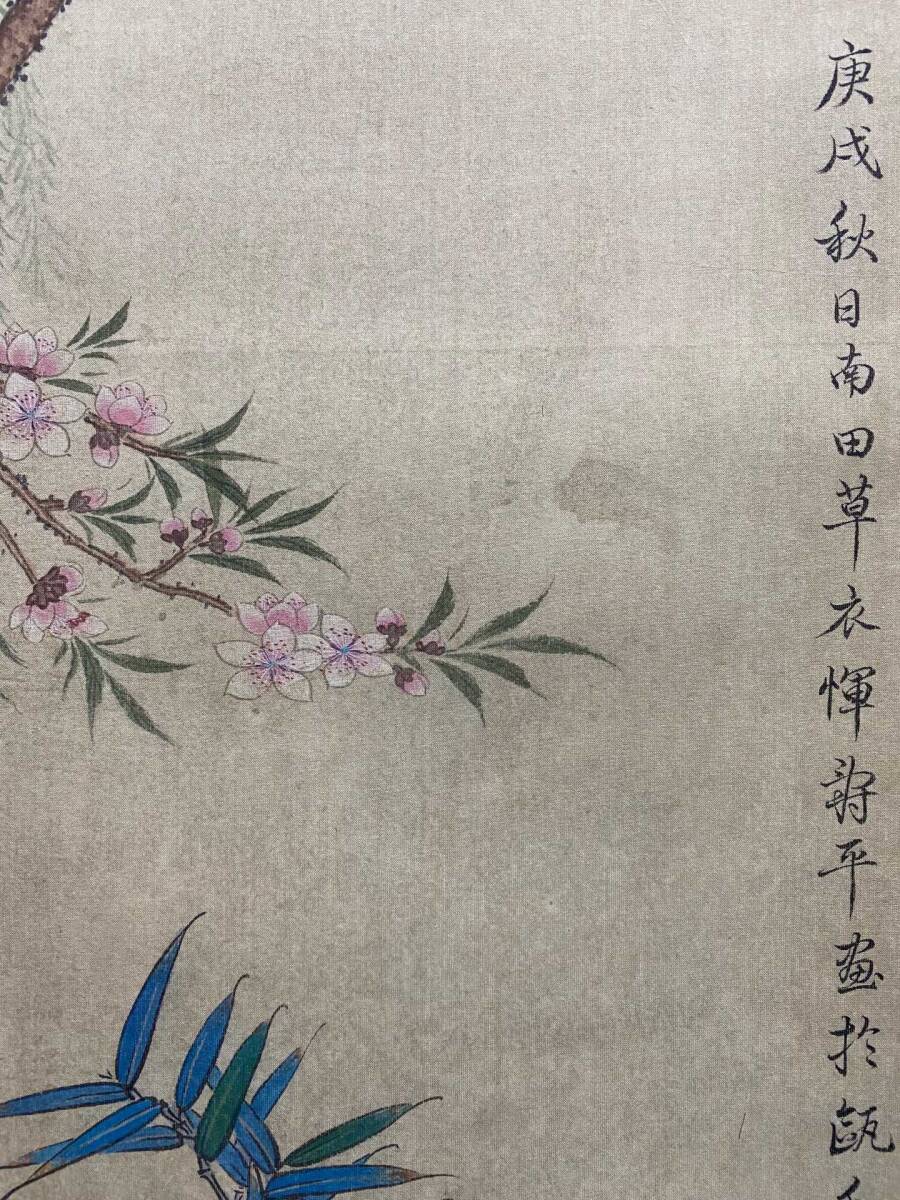 庚戌秋日南田草衣惲壽平画於甌